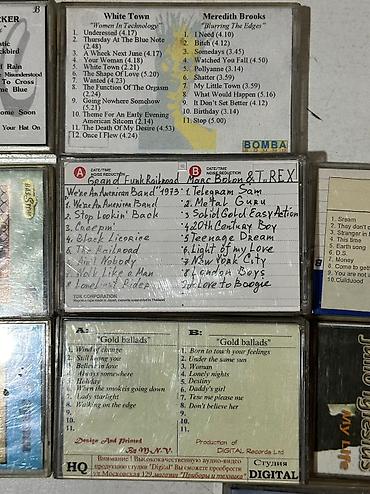 CKER
B
White Town
"Women In Technology"
1. Undressed (4.17)
2. Thursday At The Blue Note
(2.48)
3. A Wheek Next June (4.17)
4. Your Woman (4.18)
5. White Town (2.21)
6. The Shape Of Love (5.20)
7. Wanted (4.23)
8. The Function Of The Orgasm
(2.24)
9. Going Nowhere Somehow
(5.21)
10. Theme For An Early Evening
American Sitcom (2.14)
11. The Death Of My Desire (4.53)
12. Once I Flew (4.24)
Meredith Brooks
"Blurring The Edges"
1. I Need (4.10)
2. Bitch (4.12)
3. Somedays (3.45)
4. Watched You Fall (4.50)
5. Pollyanne (3.14)
6. Shatter (3.59)
7. My Little Town (3.59)
8. What Would Happen (5.16)
9. It Don't Get Better (4.12)
10. Birthday (3.14)
11. Stop (5.00)
BOMBA
of Rain
e Misunderstood
To Cross
me Blue
ome Soon
Your Hat On
A DATE/TIME
NOISE REDUCTION
Grand Funk Railroad
We're An American Band "1973"
1. We're An American Band
2. Stop Lookin' Back
3. Creepin'
4. Black Licorice
5. The Railroad
6. Ain't Nobody
7. Walk Like a Man
8. Loneliest Rider
TDK CORPORATION
B DATE/TIME
NOISE REDUCTION
Marc Bolan & T. REX
1. Telegram Sam
2. Metal Guru
3. Solid Gold Easy Action
4. 20th Century Boy
5. Teenage Dream
6. Light of my Love
7. New York City
8. London Boys
I Love to Boogie
1. Sream
2. They don't c
3. Stranger in
4. This time
5. Earth song
6. D.S.
7. Money
8. Come to get
9. You are not
10. Childwood
A:
"Gold ballads"
1. Wind of change
2. Still loving you
3. Believe in love
4. Always somewhere
5. Holiday
6. When the smok is going down
7. Lady starlight
8. Walking on the edge
9.
10.
11.
B:
"Gold ballads"
1. Born to touch your feelings
2. Under the same sun
3. Woman
4. Lonely nights
5. Destiny
6. Daddy's girl
7. Tese me please me
8. Don't believe her
9.
10.
11.
Design And Printed
By M.N.V.
Production of
DIGITAL Records Ltd
HQ
Внимание ! Высококачественную аудио-видео
продукцию студии "Digital" Вы сможете преобрести
ул Московская 129, магазин "Приборы и техника"
Студия
DIGITAL
My Life